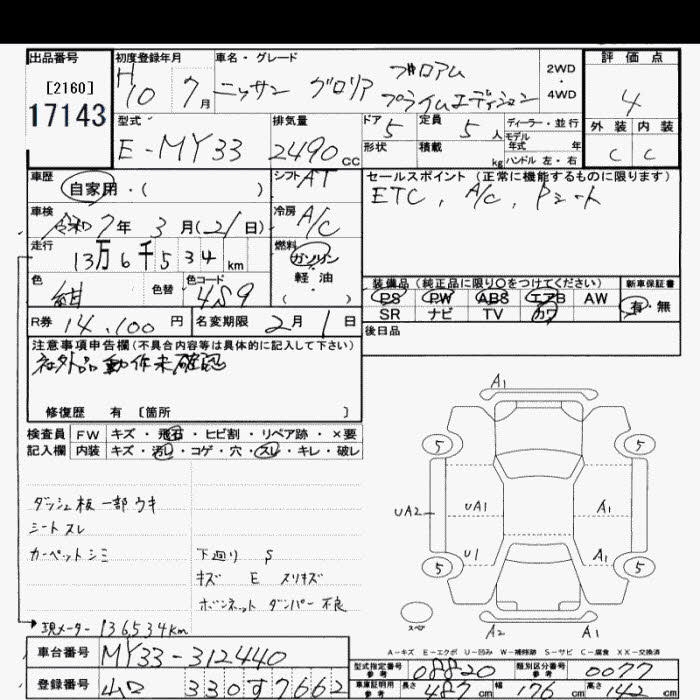 出品番号
[2160]
17143
初度登録年月
H10 7月
車名・グレード
ニッサン グロリア ブロアム
プライムエディション
2WD
・
4WD
評価点
4
外装 内装
C C
型式
E-MY33
排気量
2490cc
ドア 5
定員 5人
形状
積載 kg
ディーラー・並行
モデル年式 年
ハンドル 左・右
車歴
自家用・( )
シフト AT
車検
令和7年 3月(21日)
冷房 A/C
走行
13万6千534km
燃料
ガソリン
軽油
( )
色
紺
色替
色コード
4S9
R券 14,100円
名変期限 2月1日
セールスポイント (正常に機能するものに限ります)
ETC, A/C, Pシート
装備品 (純正品に限り○をつけてください)
新車保証書
PS PW ABS エアB AW
SR ナビ TV カワ
有・無
後日品
注意事項申告欄(不具合内容等は具体的に記入して下さい)
社外品動作未確認
修復歴 有 [箇所 ]
検査員 FW キズ・飛石・ヒビ割・リペア跡・×要
記入欄 内装 キズ・汚レ・コゲ・穴・スレ・キレ・破レ
ダッシュ板一部ウキ
シートスレ
カーペットシミ
下廻り S
キズ E スリキズ
ボンネット ダンパー不良
現メーター 136,534km
A1
5 5
UA2 UA1 A1
U1 A1
5 5
スペア
A2 A1
A-キズ E-エクボ U-凹み W-補修跡 S-サビ C-腐食 XX-交換済
車台番号
MY33-312440
登録番号
山口 330す7662
型式指定番号
参考
08820
類別区分番号
参考
0077
車庫証明用
参考
長さ 487cm 幅 176cm 高さ 142cm